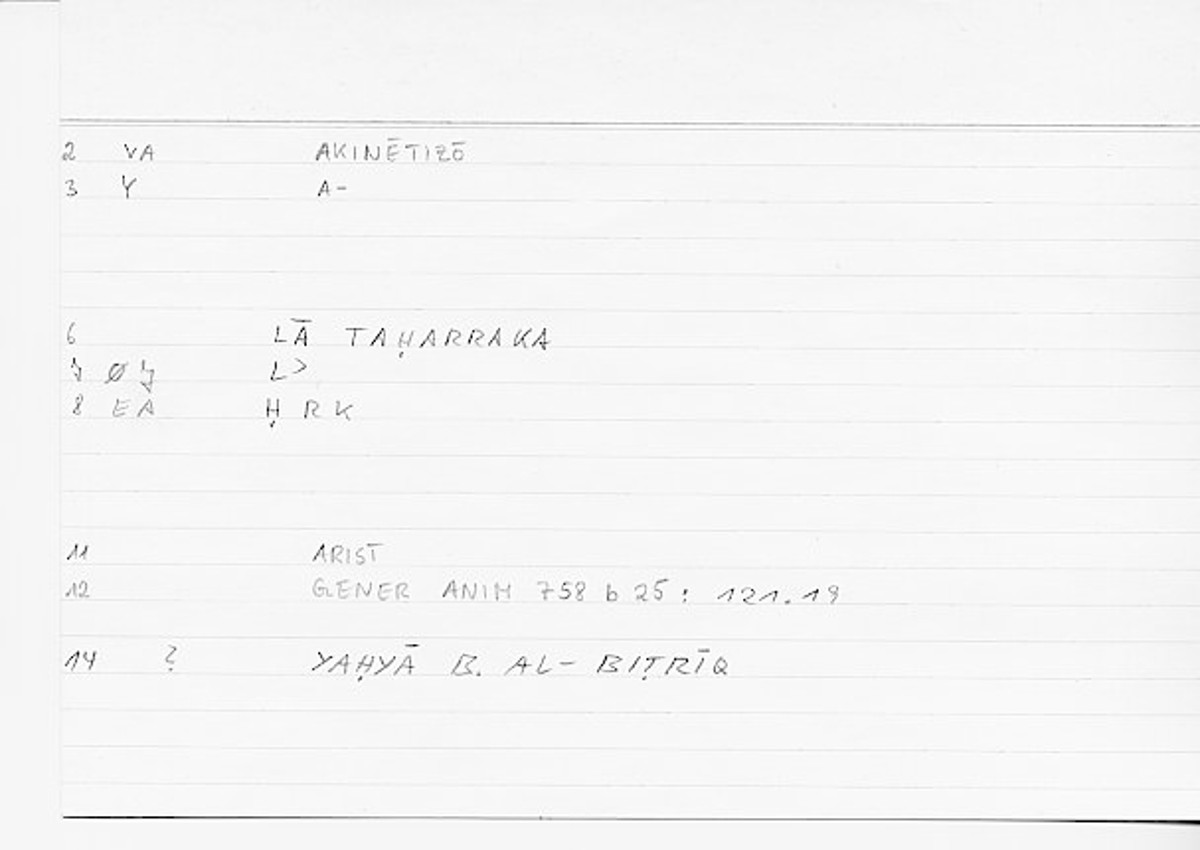 2 VA AKINĒTIZŌ
3 Y A-
6 LĀ TAḤARRAKA
7 Ø 7 L>
8 EA Ḥ R K
11 ARIST
12 GENER ANIM 758 b 25 : 121.19
14 ? YAḤYĀ B. AL- BIṬRĪQ